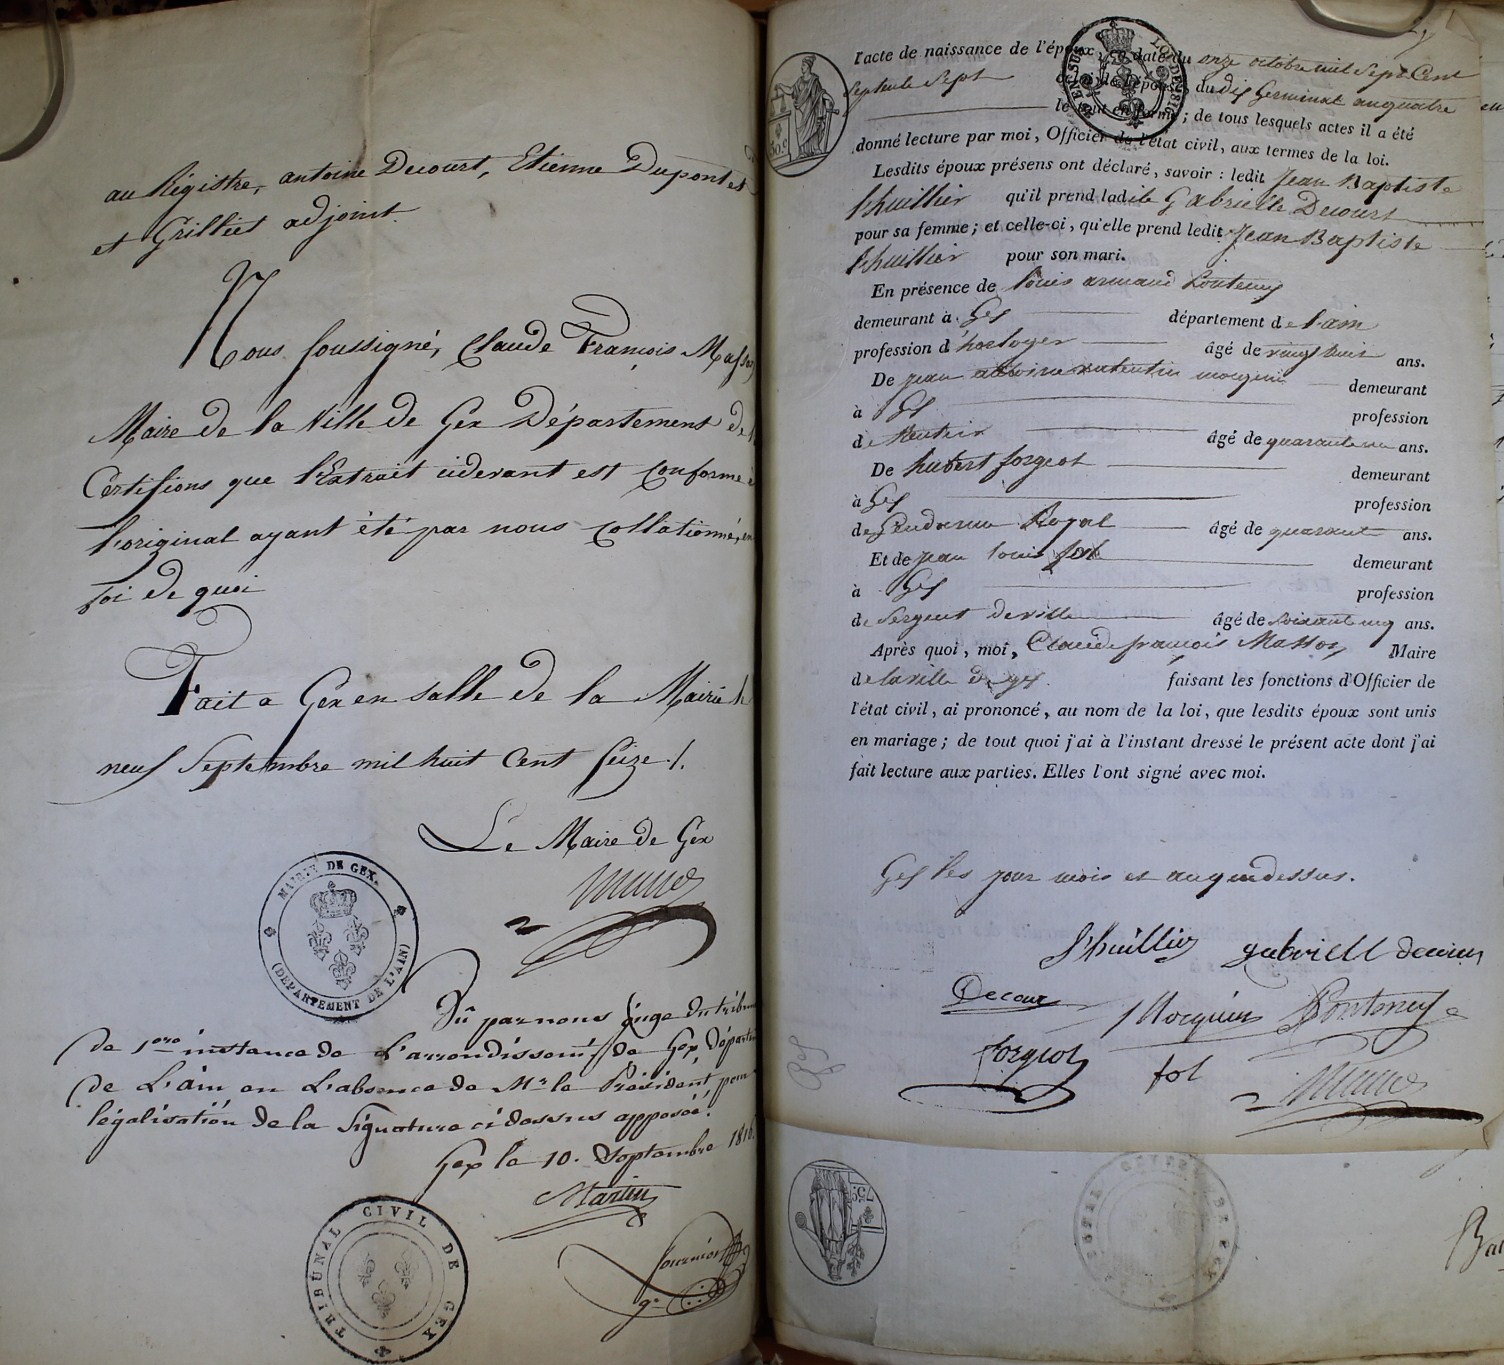 au Régistre, antoine Decourt, Etienne Dupont et
et Grilliet adjoint.
Nous soussigné, Claude François Masson
Maire de la Ville de Gex Département de
Certifions que l'Extrait cidevant est conforme à
l'original ayant été par nous collationné, en
foi de quoi
Fait a Gex en salle de la Mairie le
neuf Septembre mil huit Cent Seize ./.
Le Maire de Gex
MAIRIE DE GEX.
(DEPARTEMENT DE L'AIN)
Vû par nous Juge du tribu
de 1ere instance de L'arrondissemt de Gex, départ
de L'ain en L'absence de Mr le Président, pour
légalisation de la Signature ci dessus apposée.
Gex le 10. Septembre 1816.
Martin
fournier
TRIBUNAL CIVIL DE GEX
l'acte de naissance de l'époux, en date du onze octobre mil Sept Cent
Septante Sept de l'épouse, du dix Germinal an quatre
le tout en forme; de tous lesquels actes il a été
donné lecture par moi, Officier de l'état civil, aux termes de la loi.
LOI DE 1816
30.c
Lesdits époux présens ont déclaré, savoir : ledit Jean Baptiste
Lhuillier qu'il prend ladite Gabrielle Decourt
pour sa femme; et celle-ci, qu'elle prend ledit Jean Baptiste
Lhuillier pour son mari.
En présence de Louis armand
demeurant à Gex département de l'ain
profession d'horloger âgé de vingt huit ans.
De jean antoine valentin demeurant
à Gex profession
de Rentier âgé de quarante un ans.
De hubert forgeot demeurant
à Gex profession
de Gendarme Royal âgé de quarante ans.
Et de jean louis fol demeurant
à Gex profession
de Sergent de ville âgé de Soixante cinq ans.
Après quoi, moi, Claude françois Masson Maire
de la ville de gex faisant les fonctions d'Officier de
l'état civil, ai prononcé, au nom de la loi, que lesdits époux sont unis
en mariage; de tout quoi j'ai à l'instant dressé le présent acte dont j'ai
fait lecture aux parties. Elles l'ont signé avec moi.
Gex les jour mois et an quedessus.
Lhuillier gabriell decour
Decour
forgeot fol
75.c